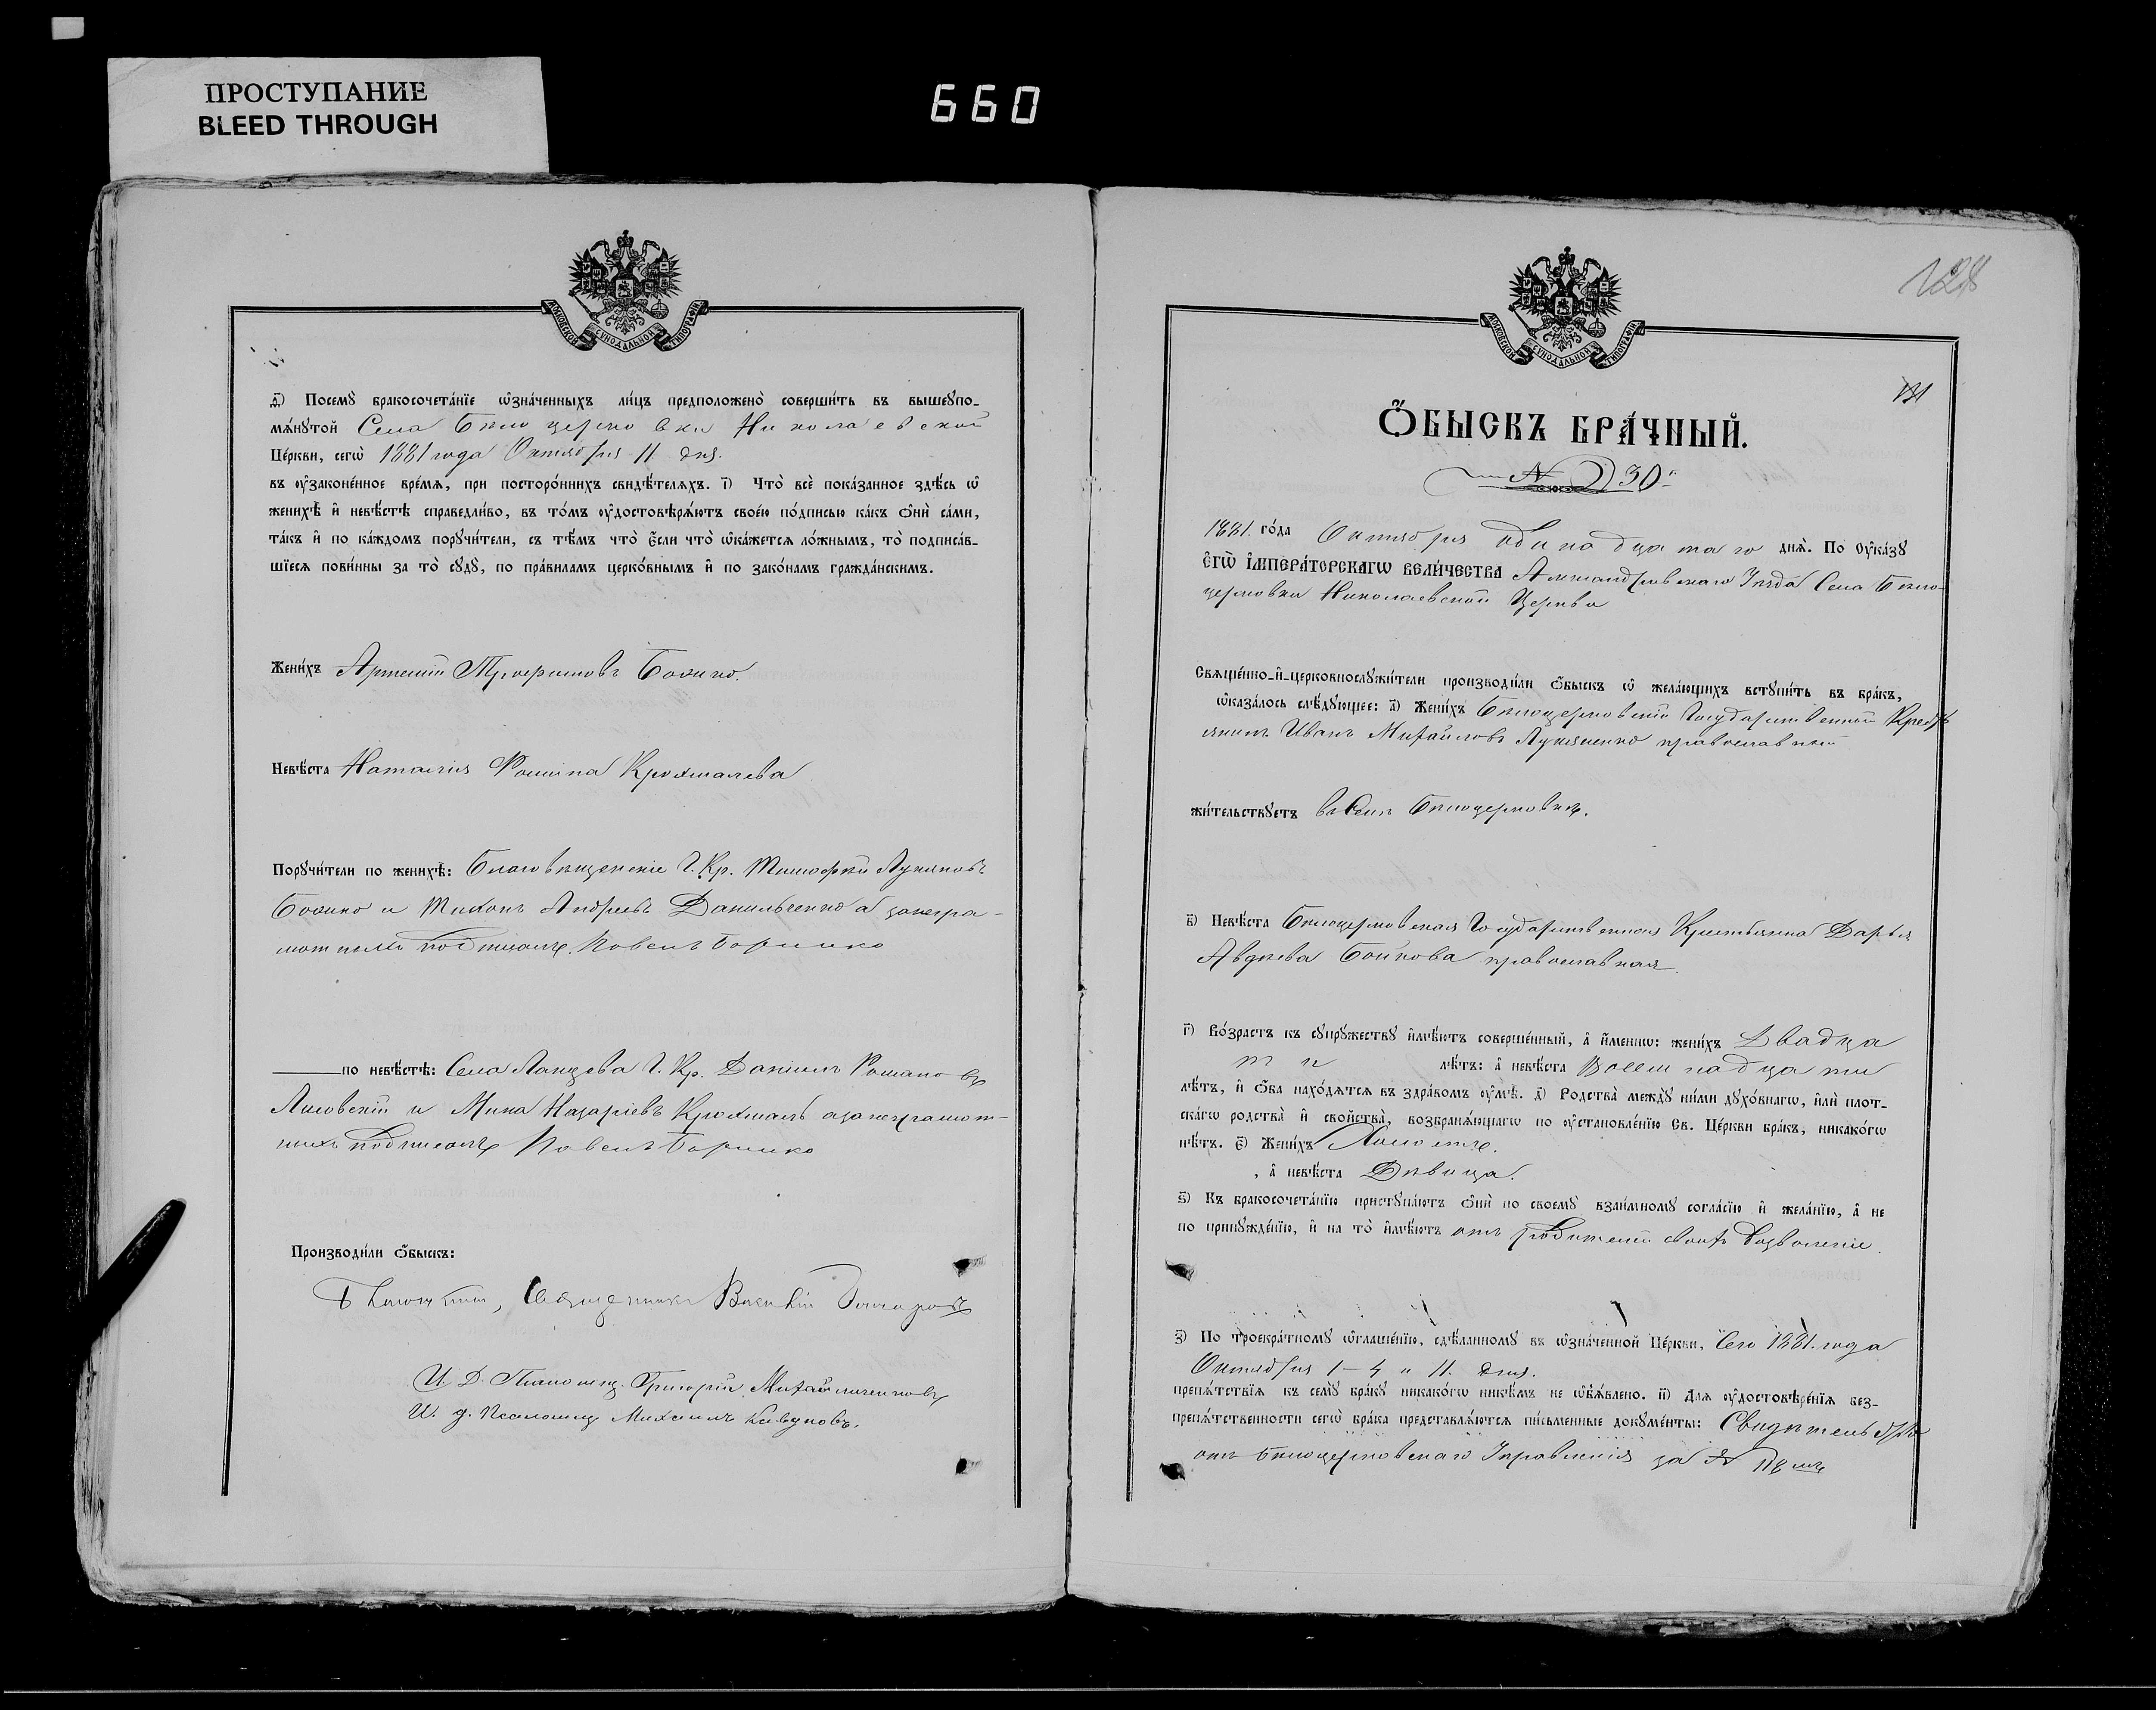 ПРОСТУПАНИЕ
BLEED THROUGH
660
МОСКОВСКОЙ СѴНОДАЛЬНОЙ ТИПОГРАФІИ
д҃) Посемꙋ бракосочета́нїе ѡ҆зна́ченныхъ ли́цъ предположено̀ соверши́ть въ вышеꙋпо-
мѧ́нꙋтой Села Бѣлоцерковки Николаевской
Це́ркви, сегѡ̀ 1881 года Октября 11 дня.
въ ᲂу҆зако́ненное вре́мѧ, при посторо́ннихъ свидѣ́телѧхъ. і҃) Что̀ всѐ пока́занное здѣ́сь ѡ҆
женихѣ̀ и҆ невѣ́стѣ справедли́во, въ то́мъ ᲂу҆достовѣрѧ́ютъ свое́ю по́дписью ка́къ ѻ҆нѝ са́ми,
та́къ и҆ по ка́ждомъ порꙋчи́тели, съ тѣ́мъ что̀ є҆́сли что̀ ѡ҆ка́жетсѧ ло́жнымъ, то̀ подписа́в-
шїесѧ пови́нны за то̀ сꙋдꙋ̀, по пра́виламъ церко́внымъ и҆ по зако́намъ гражда́нскимъ.
Жени́хъ Артемій Трофимовъ Бойко.
Невѣ́ста Наталія Фомина Крохмалева
Порꙋчи́тели по женихѣ̀: Благовѣщенскіе Г. Кр. Тимофей Лукьяновъ
Бойко и Тихонъ Андреевъ Данильченко а за негра-
мотныхъ подписалъ Павелъ Боришко
по невѣ́стѣ: Села Ланцева Г. Кр. Даніилъ Романовъ
Лисовскій и Мина Назаріевъ Крохмаль а за неграмот-
ныхъ подписалъ Павелъ Боришко
Производи́ли ѻ҆́быскъ:
Священникъ Василій
И. Д. Псаломщ. Григорій Михайличенковъ
И. д. Псаломщ. Михаилъ Кавуновъ.
128
131
МОСКОВСКОЙ СѴНОДАЛЬНОЙ ТИПОГРАФІИ
Ѻ҆́БЫСКЪ БРА́ЧНЫЙ.
№ 30.
1881. го́да Октября одинадцатаго днѧ̀. По ᲂу҆ка́зꙋ
Є҆ГѠ̀ И҆МПЕРА́ТОРСКАГѠ ВЕЛИ́ЧЕСТВА Александровскаго Уѣзда Села Бѣло-
церковки Николаевской Церкви
Свѧще́нно-и҆-церковнослꙋжи́тели производи́ли ѻ҆́быскъ ѡ҆ жела́ющихъ встꙋпи́ть въ бра́къ,
ѡ҆каза́лось слѣ́дꙋющее: а҃) Жени́хъ Бѣлоцерковскій Государственный Кресть-
янинъ Иванъ Михайловъ Лукяненко православный
жи́тельствꙋетъ въ Селѣ Бѣлоцерковкѣ.
в҃) Невѣ́ста Бѣлоцерковская Государственная Крестьянка Дарья
Авдѣева Бойкова православная.
г҃) Во́зрастъ къ сꙋпрꙋ́жествꙋ и҆мѣ́ютъ соверше́нный, а҆ и҆́меннѡ: жени́хъ Двадца
ти лѣ́тъ: а҆ невѣ́ста Восемнадцати
лѣ́тъ, и҆ ѻ҆́ба нахо́дѧтсѧ въ здра́вомъ ᲂу҆мѣ̀. д҃) Родства̀ междꙋ̀ ни́ми дꙋхо́внагѡ, и҆лѝ пло́т-
скагѡ родства̀ и҆ свойства̀, возбранѧ́ющагѡ по ᲂу҆становле́нїю Св. Це́ркви бра́къ, никако́гѡ
нѣ́тъ. є҃) Жени́хъ Холостъ.
, а҆ невѣ́ста Дѣвица.
ѕ҃) Къ бракосочета́нїю пристꙋпа́ютъ ѻ҆нѝ по своемꙋ̀ взаи́мномꙋ согла́сїю и҆ жела́нїю, а҆ не
по принꙋжде́нїю, и҆ на то̀ и҆мѣ́ютъ отъ родителей своихъ дозволеніе.
з҃) По троекра́тномꙋ ѡ҆глаше́нїю, сдѣ́ланномꙋ въ ѡ҆зна́ченной Це́ркви, Сего 1881. года
Октября 1 – 4 и 11. дня.
препѧ́тствїѧ къ семꙋ̀ бра́кꙋ никако́гѡ никѣ́мъ не ѡ҆б̾ѧ́влено. и҃) Длѧ ᲂу҆достовѣ́ренїѧ без-
препѧ́тственности сегѡ̀ бра́ка представлѧ́ютсѧ пи́сьменные докꙋме́нты: Свидѣтельство
отъ Бѣлоцерковскаго Управленія за №